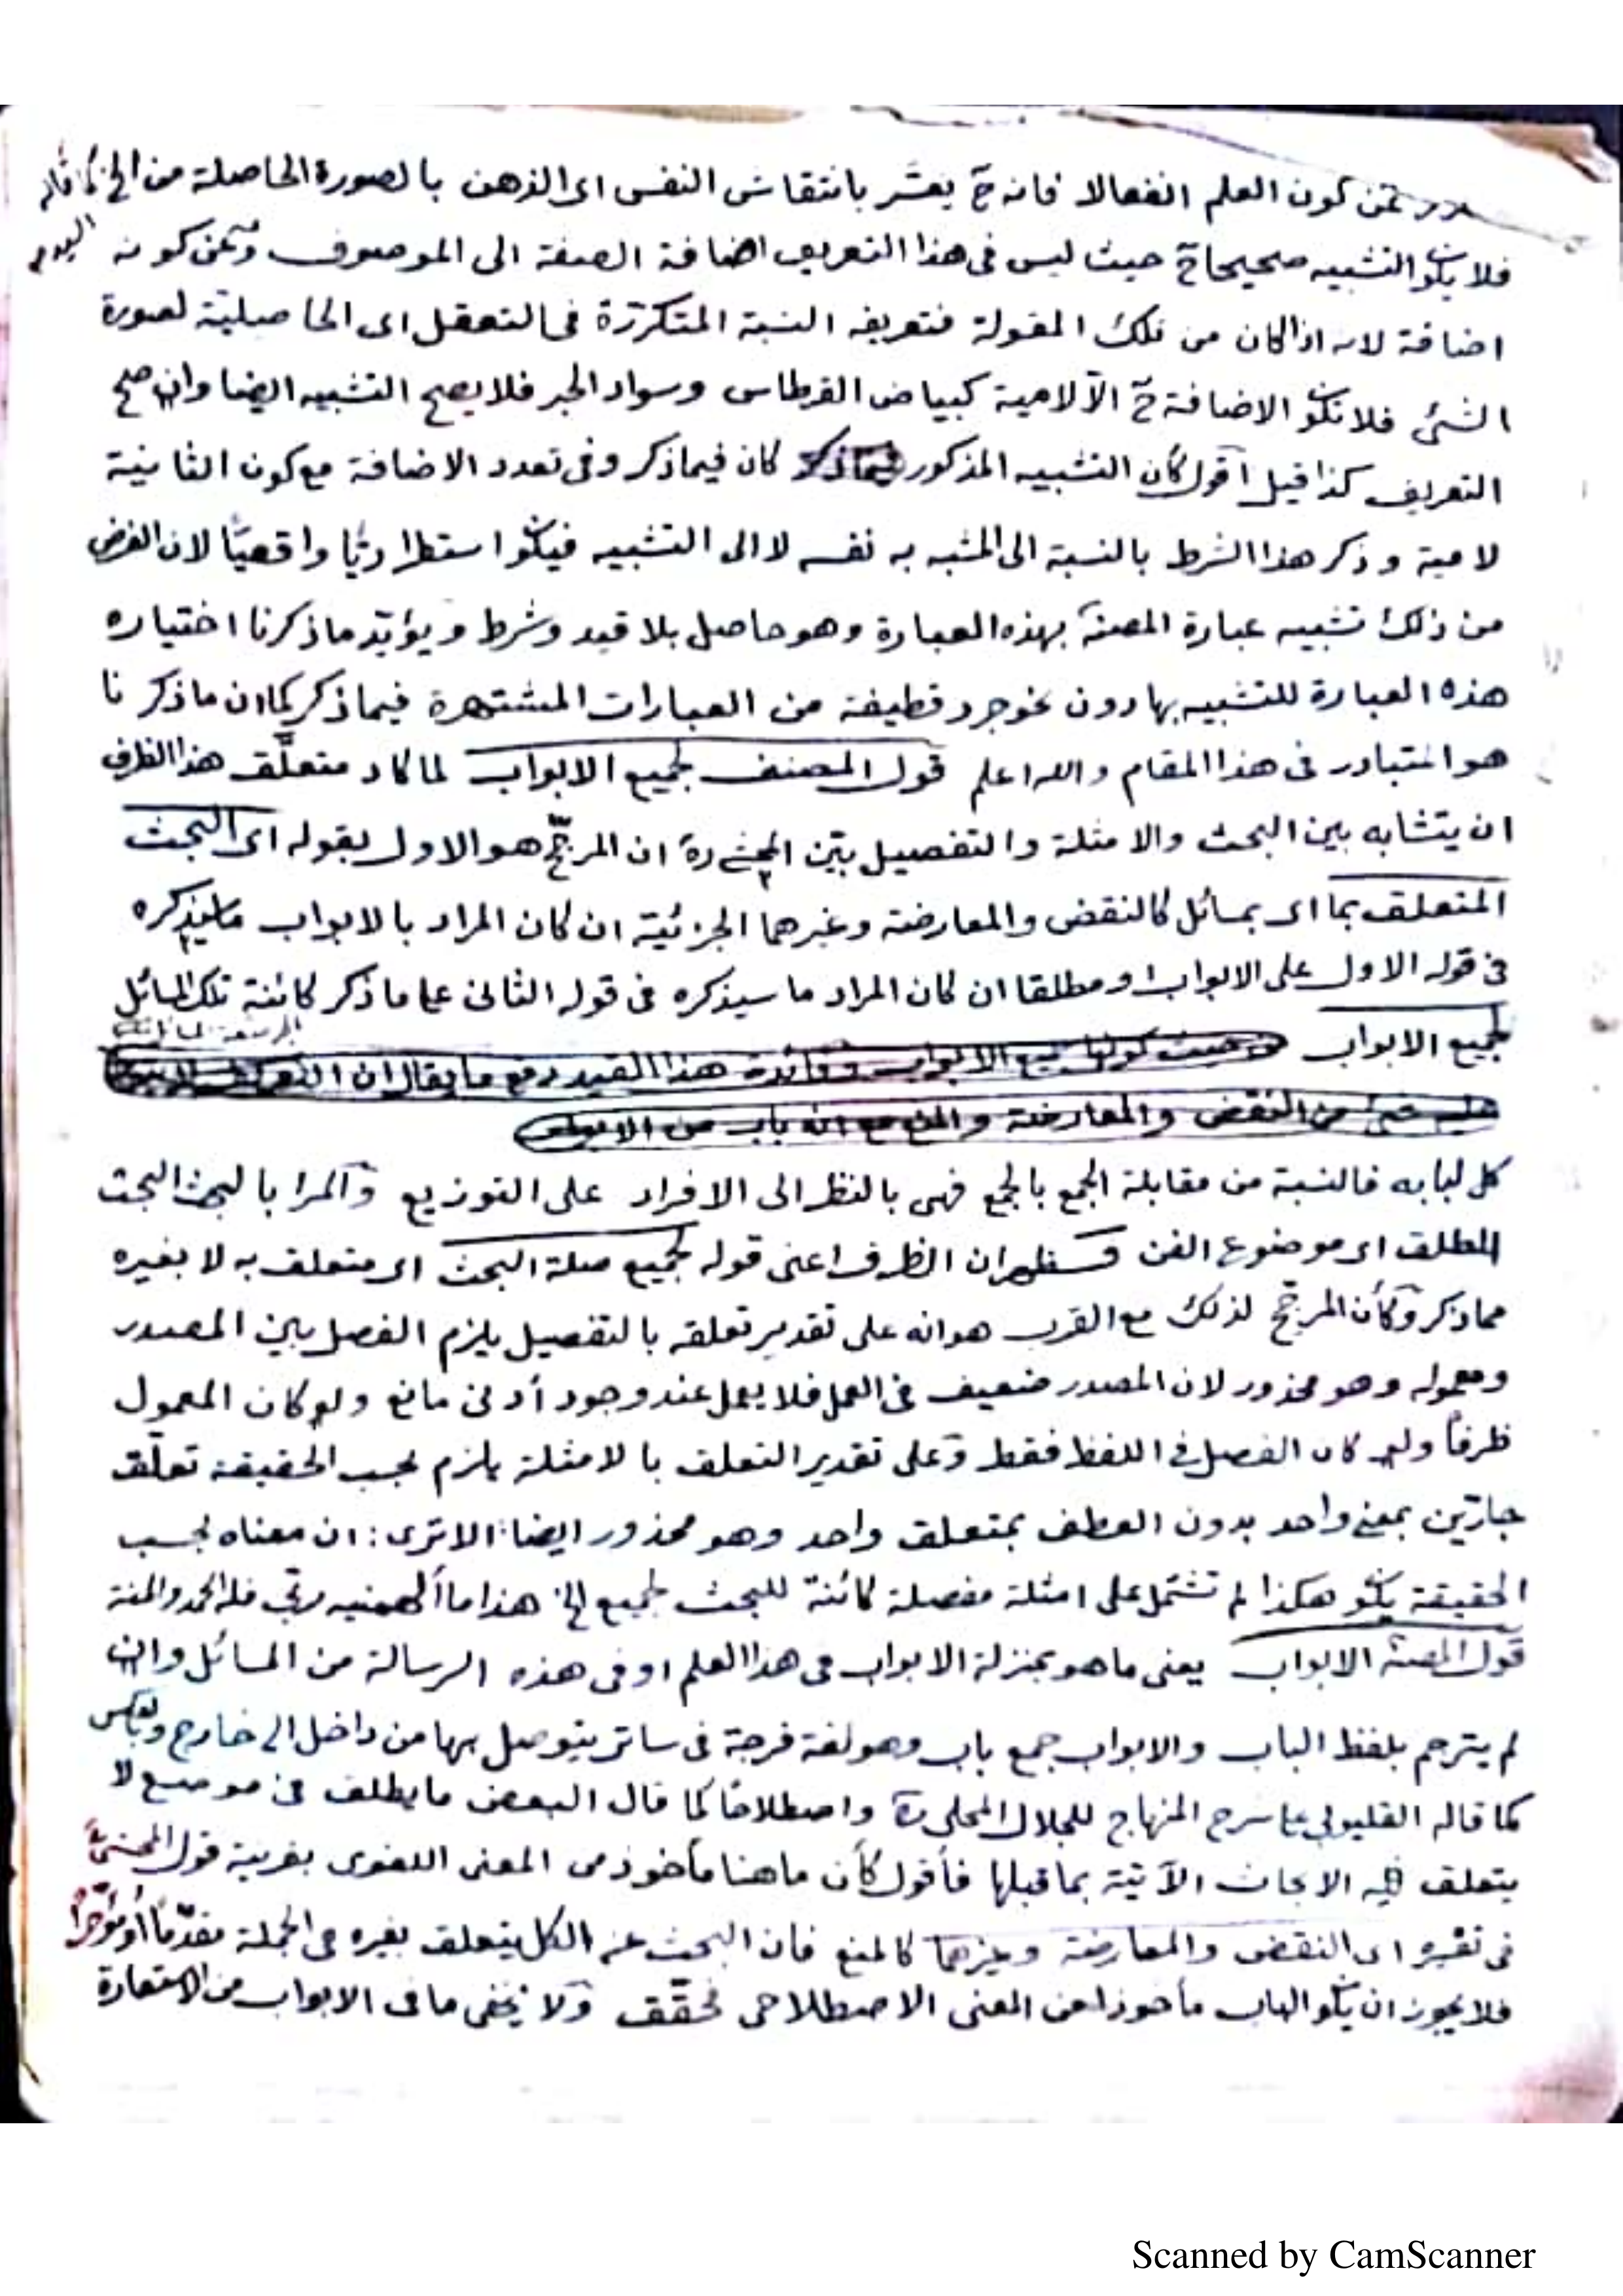 كون العلم انفعالا فانه ح يفسّر بانتقاش النفس اى الذهن بالصورة الحاصلة من الخ كما قاله
فلا يكون التشبيه صحيحا ح حيث ليس فى هذا التعريف اضافة الصفة الى الموصوف وعن كونه
اضافة لانه اذا كان من تلك المقولة فتعريفه النسبة المتكررة فى التعقل اى الحاصلية لصورة
الشئ فلا تكون الاضافة ح الا لامية كبياض القرطاس وسواد الحبر فلا يصح التشبيه ايضا وان صح
التعريف كذا قيل اقول كأن التشبيه المذكور كان فيما ذكر وفى تعدد الاضافة مع كون الثانية
لامية وذكر هذا الشرط بالنسبة الى المشبه به نفسه لا الى التشبيه فيكون استطراديّا واقعيّا لان الغرض
من ذلك تشبيه عبارة المصنف بهذه العبارة وهو حاصل بلا قيد وشرط ويؤيّد ما ذكرنا اختياره
هذه العبارة للتشبيه بها دون نحو جرد قطيفة من العبارات المشتهرة فيما ذكر كما ان ما ذكرنا
هو المتبادر فى هذا المقام والله اعلم قول المصنف لجميع الابواب لما كاد متعلَّق هذا الظرف
ان يتشابه بين البحث والامثلة والتفصيل بيّن المحشى ره ان المرجّح هو الاول بقوله اى البحث
المتعلق بما اى بمسائل كالنقض والمعارضة وغيرهما الجزئية ان كان المراد بالابواب ما سيذكره
فى قوله الاول على الابواب او مطلقا ان كان المراد ما سيذكره فى قوله الثانى على ما ذكر كائنة تلك المسائل
لجميع الابواب
كل لبابه فالنسبة من مقابلة الجمع بالجمع فهى بالنظر الى الافراد على التوزيع والمراد بالبحث البحث
المطلق اى موضوع الفن فسظهر ان الظرف اعنى قوله لجميع صلة البحث اى متعلق به لا بغيره
مما ذكر وكأن المرجّح لذلك مع القرب هو انه على تقدير تعلقه بالتفصيل يلزم الفصل بين المصدر
ومعموله وهو محذور لان المصدر ضعيف فى العمل فلا يعمل عند وجود أدنى مانع ولو كان المعمول
ظرفاً ولو كان الفصل فى اللفظ فقط وعلى تقدير التعلق بالامثلة يلزم بحسب الحقيقة تعلّق
جارّين بمعنى واحد بدون العطف بمتعلق واحد وهو محذور ايضا: الا ترى: ان معناه بحسب
الحقيقة يكون هكذا لم تشتمل على امثلة مفصلة كائنة للبحث لجميع الخ هذا ما ألهمنيه ربّى فله الحمد والمنة
قول المصنف الابواب يعنى ما هو بمنزلة الابواب فى هذا العلم او فى هذه الرسالة من المسائل وان
لم يترجم بلفظ الباب والابواب جمع باب وهو لغة فرجة فى ساتر يتوصل بها من داخل الى خارج وبالعكس
كما قاله القليوبى على شرح المنهاج للجلال المحلى ره واصطلاحًا كما قال البعض ما يطلق فى موضع لا
يتعلق فيه الابحاث الآتية بما قبلها فأقول كأن ما هنا مأخوذ من المعنى اللغوى بقرينة قول المحشى
فى تفسيره اى النقض والمعارضة وغيرهما كالمنع فان البحث عنه الكل يتعلق بغيره فى الجملة مقدّماً أو مؤخّراً
فلا يجوز ان يكون الباب مأخوذا من المعنى الاصطلاحى فحقّق ولا يخفى ما فى الابواب من الاستعارة
Scanned by CamScanner